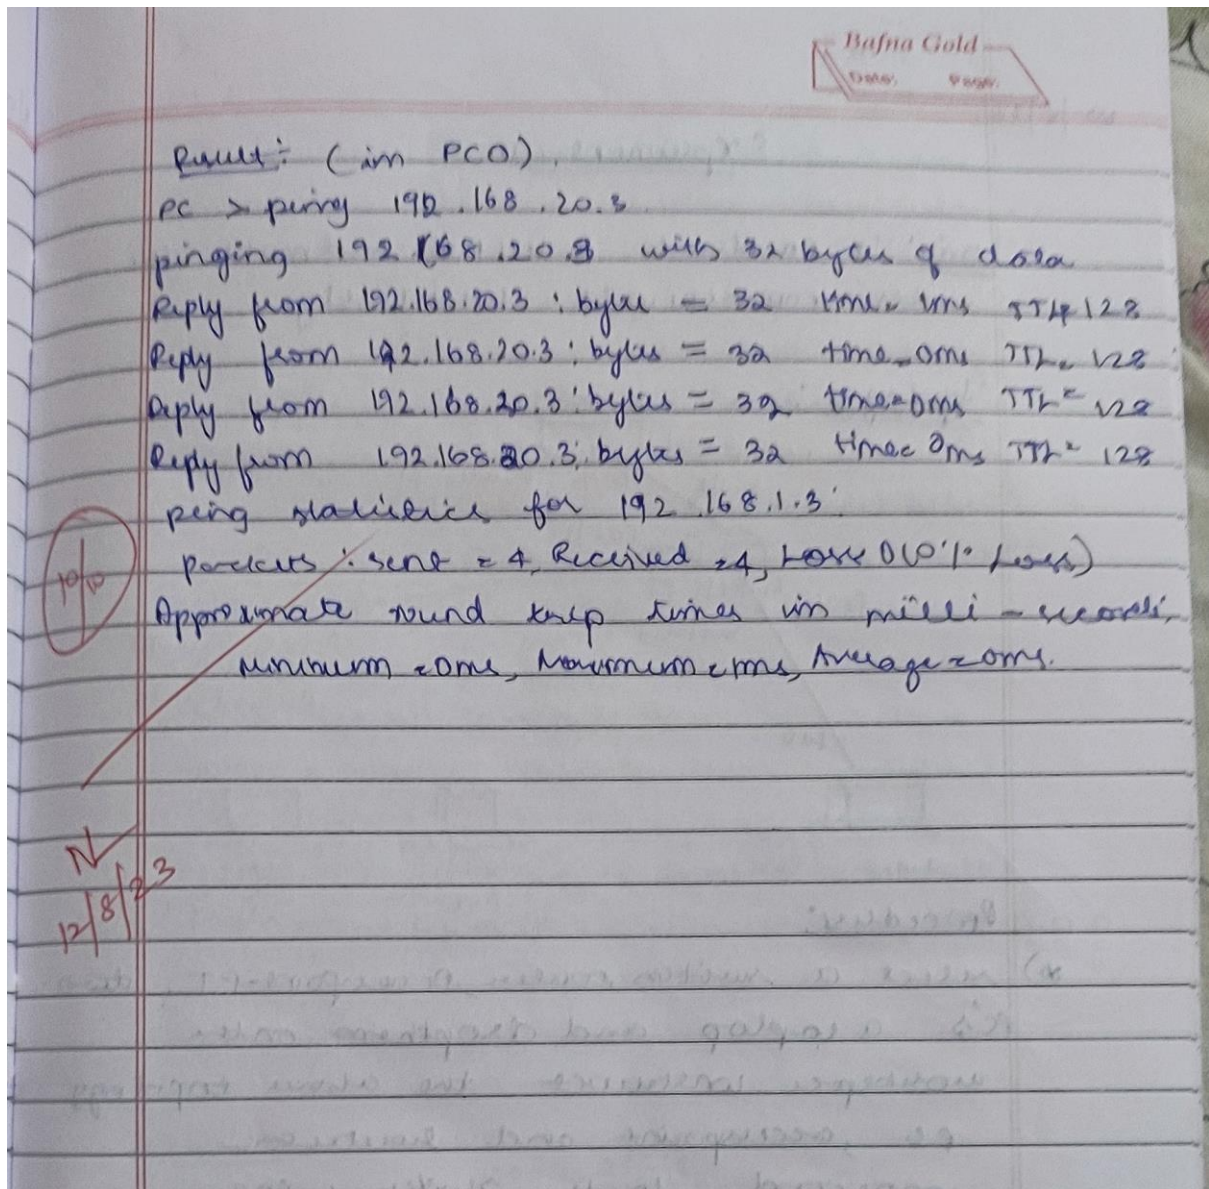 Bafna Gold
Date: Page:
Result: (in PC0)
PC > pining 192.168.20.3
pinging 192 168.20.3 with 32 bytes of data
Reply from 192.168.20.3: bytes = 32 time= 1ms TTL=128
Reply from 192.168.20.3: bytes = 32 time=0ms TTL= 128
Reply from 192.168.20.3: bytes = 32 time=0ms TTL= 128
Reply from 192.168.20.3: bytes = 32 time= 0ms TTL= 128
ping statistics for 192.168.1.3:
packets: sent = 4, Received =4, Loss 0(0% Loss)
Approximate round trip times in milli-seconds
Minimum =0ms, Maximum=1ms, Average=0ms.
10/10
N
12/8/23